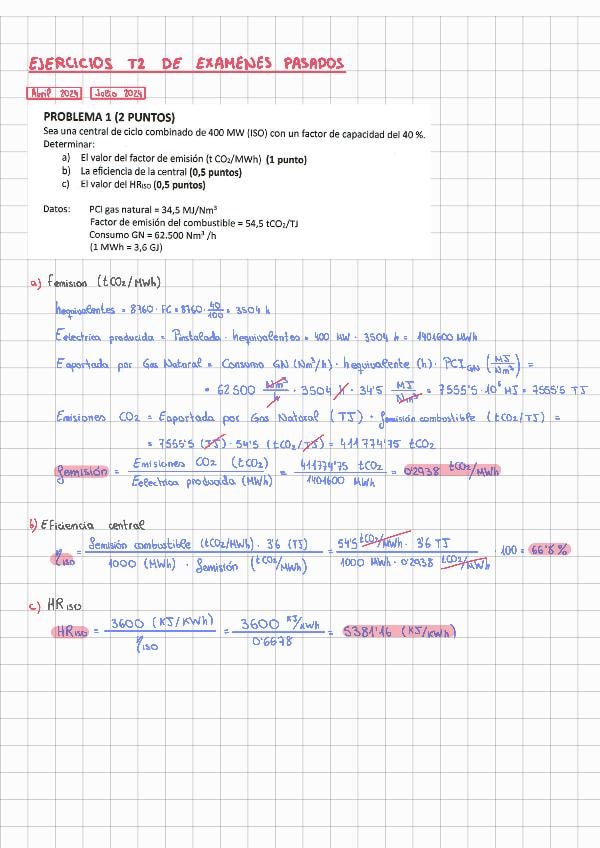 EJERCICIOS T2 DE EXAMENES PASADOS
Abril 2024 Julio 2024
PROBLEMA 1 (2 PUNTOS)
Sea una central de ciclo combinado de 400 MW (ISO) con un factor de capacidad del 40 %.
Determinar:
a) El valor del factor de emisión (t CO2/MWh) (1 punto)
b) La eficiencia de la central (0,5 puntos)
c) El valor del HRISO (0,5 puntos)
Datos: PCI gas natural = 34,5 MJ/Nm³
Factor de emisión del combustible = 54,5 tCO2/TJ
Consumo GN = 62.500 Nm³ /h
(1 MWh = 3,6 GJ)
a) femision (tCO2/MWh)
hequivalentes = 8760 · FC = 8760 · 40/100 = 3504 h
Eelectrica producida = Pinstalada · hequivalentes = 400 MW · 3504 h = 1401600 MWh
Eaportada por Gas Natural = Consumo GN (Nm³/h) · hequivalente (h) · PCI GN (MJ/Nm³) =
= 62500 Nm³/h · 3504 h · 34'5 MJ/Nm³ = 7555'5 · 10⁶ MJ = 7555'5 TJ
Emisiones CO2 = Eaportada por Gas Natural (TJ) · femisión combustible (tCO2/TJ) =
= 7555'5 (TJ) · 54'5 (tCO2/TJ) = 411774'75 tCO2
femisión = Emisiones CO2 (tCO2) / Eelectrica producida (MWh) = 411774'75 tCO2 / 1401600 MWh = 0'2938 tCO2/MWh
b) Eficiencia central
ηISO = femisión combustible (tCO2/MWh) · 3'6 (TJ) / 1000 (MWh) · femisión (tCO2/MWh) = 54'5 tCO2/MWh · 3'6 TJ / 1000 MWh · 0'2938 tCO2/MWh · 100 = 66'8 %
c) HR ISO
HR ISO = 3600 (KJ/KWh) / ηISO = 3600 KJ/KWh / 0'6678 = 5381'16 (KJ/KWh)